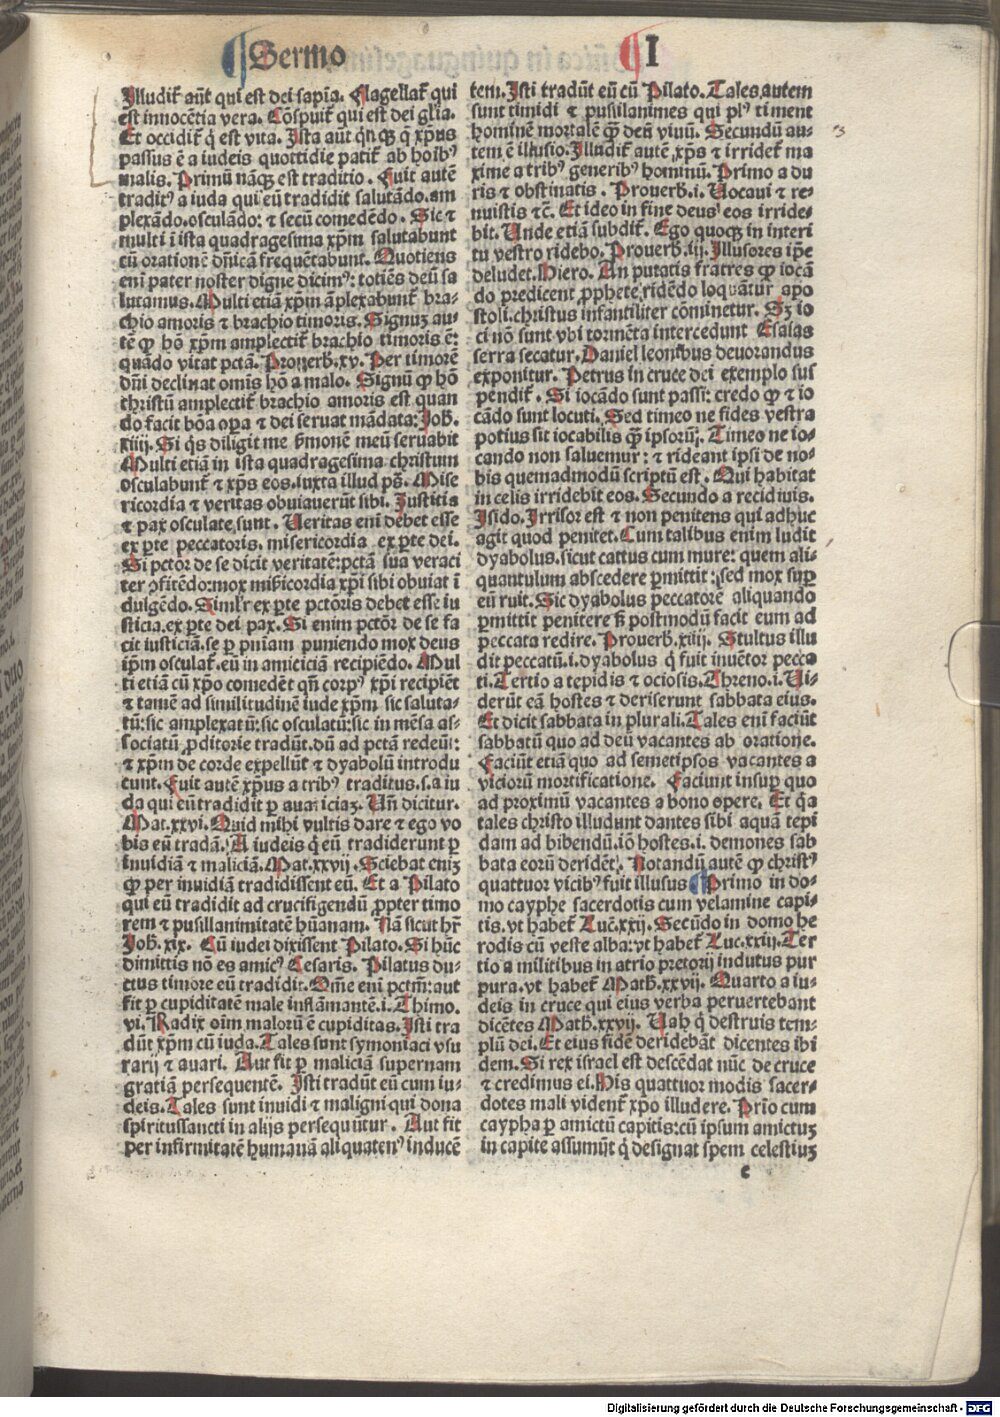 Sermo I
Illudit᷑ aūt qui est dei sapīa. Flagellat᷑ qui
est innocētia vera. Cōspuit᷑ qui est dei glīa.
Et occidit᷑ q̇ est vita. Ista aūt q̄nqꝫ q̄ xp̄us
passus ē a iudeis quottidie patit᷑ ab hoīb⁹
malis. Primū nāqꝫ est traditio. Fuit autē
tradit⁹ a iuda qui eū tradidit salutādo.am
plexādo.osculādo: ⁊ secū comedēdo. Sic ⁊
multi ī ista quadragesima xp̄m salutabunt
cū orationē dn̄icā frequētabunt. Quotiens
enī pater noster digne dicim⁹: totiēs deū sa
lutamus. Multi etiā xp̄m āplexabunt᷑ bra-
chio amoris ⁊ brachio timoris. Signuꝫ au-
tē ꝙ hō xp̄m amplectit᷑ brachio timoris ē:
quādo vitat pctā. Prouerb.xv. Per timorē
dn̄i declinat omīs hō a malo. Signū ꝙ hō
christū amplectit᷑ brachio amoris est quan
do facit bōa oꝑa ⁊ dei seruat mādata: Joh.
xiiij. Si q̇s diligit me ẜmonē meū seruabit
Multi etiā in ista quadragesima christum
osculabunt᷑ ⁊ xp̄s eos.iuxta illud ps̄. Mise
ricordia ⁊ veritas obuiauerūt sibi. Justitia
⁊ pax osculate sunt. Veritas enī debet esse
ex ꝑte peccatoris. misericordia ex ꝑte dei.
Si pctōr de se dicit veritatē:pctā sua veraci
ter ꝯfitēdo:mox mīẜicordia xp̄i sibi obuiat ī
dulgēdo. Simlr̄ ex ꝑte pctōris debet esse iu
sticia.ex ꝑte dei pax. Si enim pctōr de se fa
cit iusticiā.se ꝑ pn̄iam puniendo mox deus
ip̄m osculat᷑.eū in amiciciā recipiēdo. Mul
ti etiā cū xp̄o comedēt qn̄ corp⁹ xp̄i recipiēt
⁊ tamē ad similitudinē iude xp̄m sic saluta-
tū:sic amplexatū:sic osculatū:sic in mēsa as-
sociatū ꝓditorie tradūt.dū ad pctā redeūt:
⁊ xp̄m de corde expellūt ⁊ dyabolū introdu
cunt. Fuit autē xp̄us a trib⁹ traditus.s.a iu
da qui eū tradidit ꝑ auariciaꝫ. Vn̄ dicitur.
Mat.xxvi. Quid mihi vultis dare ⁊ ego vo
bis eū tradā. A iudeis q̇ eū tradiderunt ꝑ
inuidiā ⁊ maliciā. Mat.xxvij. Sciebat eniꝫ
ꝙ per inuidiam tradidissent eū. Et a Pilato
qui eū tradidit ad crucifigendū ꝓpter timo
rem ⁊ pusillanimitatē hūanam. Nā sicut hr̄
Joh. xix. Cū iudei dixissent Pilato. Si hūc
dimittis nō es amic⁹ Cesaris. Pilatus du-
ctus timore eū tradidit. Om̄e enī pctm̄:aut
fit ꝑ cupiditatē male inflāmantē.i. Thimo.
vi. Radix oīm malorū ē cupiditas. Isti tra
dūt xp̄m cū iuda. Tales sunt symoniaci vsu
rarij ⁊ auari. Aut fit ꝑ maliciā supernam
gratiā persequentē. Isti tradūt eū cum iu-
deis. Tales sunt inuidi ⁊ maligni qui dona
spiritussancti in alijs persequūtur. Aut fit
per infirmitatē humanā aliquaten⁹ inducē
tem. Isti tradūt eū cū Pilato. Tales autem
sunt timidi ⁊ pusillanimes qui pl⁹ timent
hominē mortalē ꝙ̄ deū viuū. Secundū au-
tem ē illusio. Illudit᷑ autē xp̄s ⁊ irridet᷑ ma
xime a trib⁹ generib⁹ hominū. Primo a du
ris ⁊ obstinatis. Prouerb.i. Vocaui ⁊ re-
nuistis ⁊c̄. Et ideo in fine deus eos irride-
bit. Unde etiā subdit᷑. Ego quoqꝫ in interi
tu vestro ridebo. Prouerb.iij. Illusores ip̄e
deludet. Hiero. An putatis fratres ꝙ iocā
do predicent ꝓphete.ridēdo loquātur apo
stoli.christus infantiliter cōminetur. Sꝫ io
ci nō sunt vbi tormēta intercedunt Esaias
serra secatur. Daniel leonib⁹ deuorandus
exponitur. Petrus in cruce dei exemplo sus
pendit᷑. Si iocādo sunt passi: credo ꝙ ⁊ io
cādo sunt locuti. Sed timeo ne fides vestra
potius sit iocabilis ꝙ̄ ipsorū. Timeo ne io-
cando non saluemur: ⁊ rideant ipsi de no-
bis quemadmodū scriptū est. Qui habitat
in celis irridebit eos. Secundo a recidiuis.
Isido. Irrisor est ⁊ non penitens qui adhuc
agit quod penitet. Cum talibus enim ludit
dyabolus.sicut cattus cum mure: quem ali-
quantulum abscedere ꝑmittit: sed mox suꝑ
eū ruit. Sic dyabolus peccatorē aliquando
ꝑmittit penitere ẜꝫ postmodū facit eum ad
peccata redire. Prouerb.xiiij. Stultus illu
dit peccatū.i.dyabolus q̇ fuit inuētor pecca
ti. Tertio a tepidis ⁊ ociosis. Threno.i. Vi-
derūt eā hostes ⁊ deriserunt sabbata eius.
Et dicit sabbata in plurali. Tales enī faciūt
sabbatū quo ad deū vacantes ab oratione.
Faciūt etiā quo ad semetipsos vacantes a
viciorū mortificatione. Faciunt insuꝑ quo
ad proximū vacantes a bono opere. Et q̄a
tales christo illudunt dantes sibi aquā tepi
dam ad bibendū.iō hostes.i.demones sab
bata eorū deridēt. Notandū autē ꝙ christ⁹
quattuor vicib⁹ fuit illusus Primo in do-
mo cayphe sacerdotis cum velamine capi-
tis.vt habet᷑ Luc.xxij. Secūdo in domo he
rodis cū veste alba:vt habet᷑ Luc.xxiij. Ter
tio a militibus in atrio pretorij indutus pur
pura.vt habet᷑ Math.xxvij. Quarto a iu-
deis in cruce qui eius verba peruertebant
dicētes Math.xxvij. Vah q̇ destruis tem-
plū dei. Et eius fidē deridebāt dicentes ibi
dem. Si rex israel est descēdat nūc de cruce
⁊ credimus ei. His quattuor modis sacer-
dotes mali vident᷑ xp̄o illudere. Prīo cum
caypha ꝑ amictū capitis:cū ipsum amictuꝫ
in capite assumūt q̇ designat spem celestiuꝫ
c
Digitalisierung gefördert durch die Deutsche Forschungsgemeinschaft - DFG